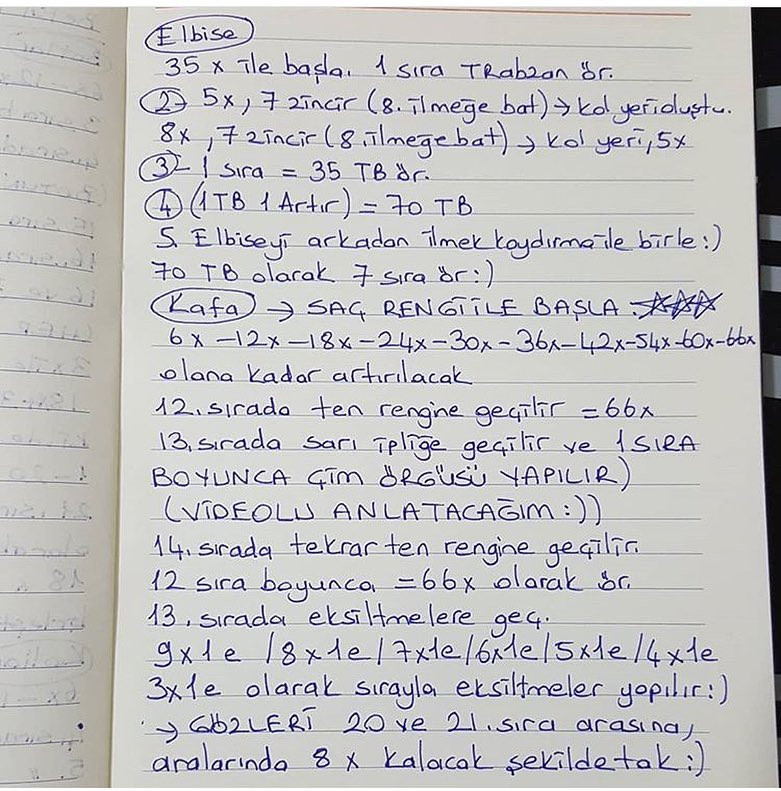 Elbise
35 x ile başla. 1 sıra TRabzan ör.
2) 5x, 7 zincir (8. ilmeğe bat) → kol yeri oluştu.
8x, 7 zincir (8. ilmeğe bat) → kol yeri, 5x
3- 1 sıra = 35 TB ör.
4) (1TB 1 Artır) = 70 TB
5. Elbiseyi arkadan ilmek kaydırma ile birle :)
70 TB olarak 7 sıra ör :)
Kafa → SAÇ RENGİ İLE BAŞLA.
6x -12x -18x -24x -30x - 36x - 42x -54x -60x -66x
olana kadar artırılacak
12. sırada ten rengine geçilir = 66x
13. sırada sarı ipliğe geçilir ve 1 SIRA
BOYUNCA ÇİM ÖRGÜSÜ YAPILIR)
(VİDEOLU ANLATACAĞIM :))
14. sırada tekrar ten rengine geçilir.
12 sıra boyunca = 66x olarak ör.
13. sırada eksiltmelere geç.
9x1e / 8x1e / 7x1e / 6x1e / 5x1e / 4x1e
3x1e olarak sırayla eksiltmeler yapılır :)
→ GÖZLERİ 20 ve 21. sıra arasına,
aralarında 8 x kalacak şekilde tak :)